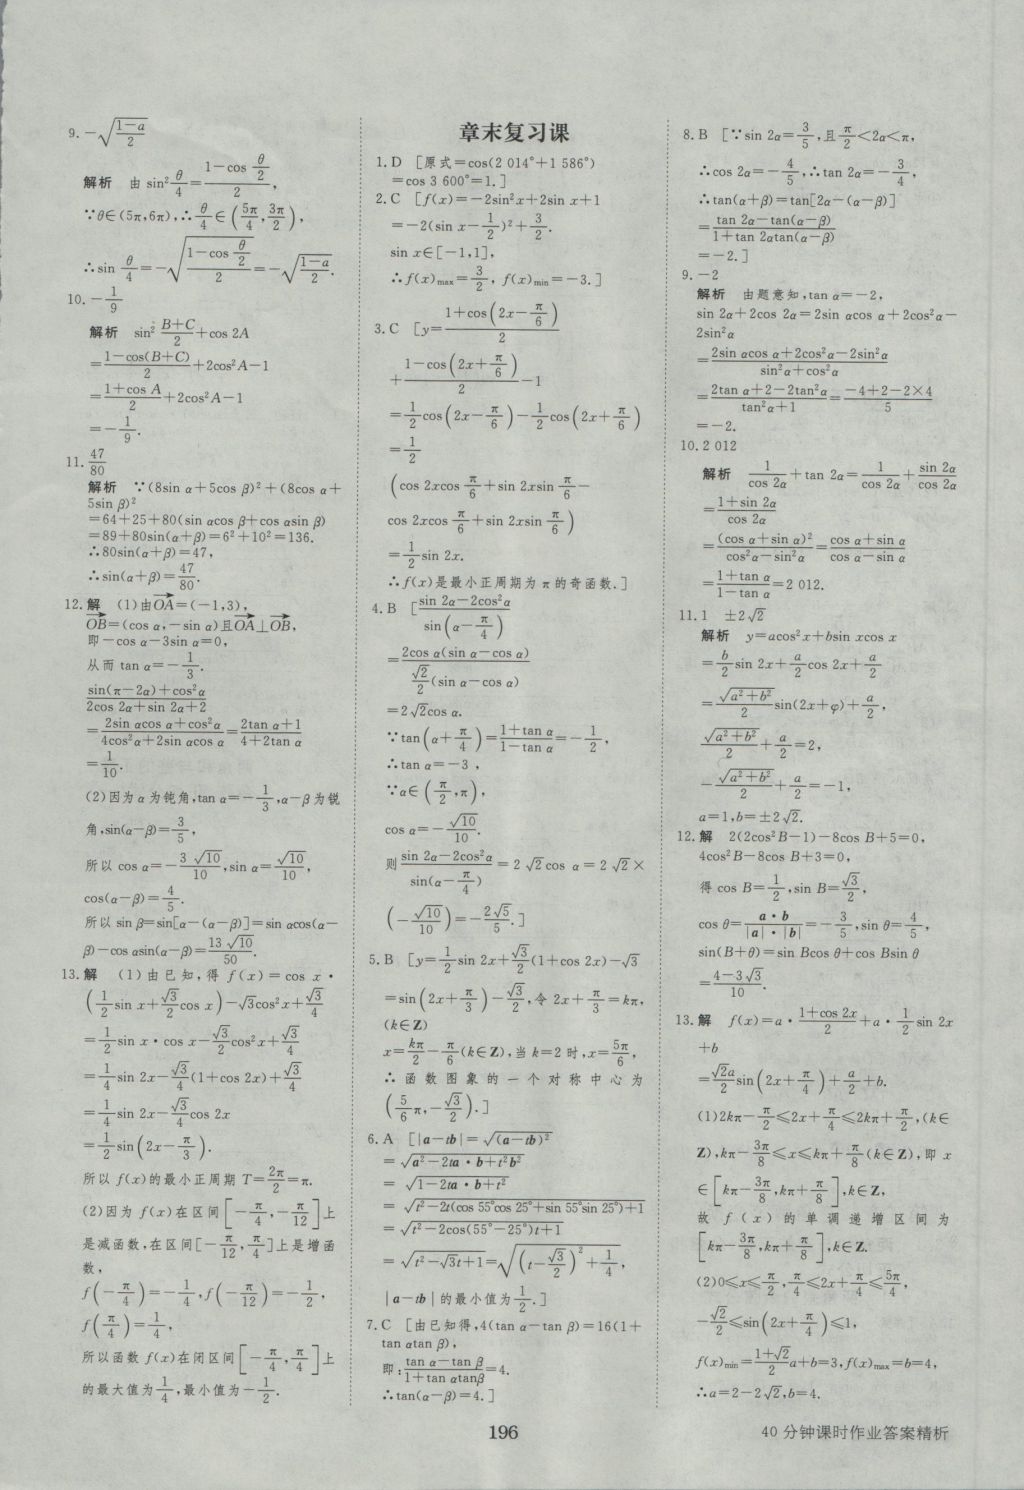 9. -√((1-a)/2)
解析 由 sin²θ/4=(1-cos θ/2)/2,
∵θ∈(5π,6π),∴θ/4∈(5π/4,3π/2),
∴sin θ/4=-√((1-cos θ/2)/2)=-√((1-a)/2).
10. -1/9
解析 sin²(B+C)/2+cos 2A
=(1-cos(B+C))/2+2cos²A-1
=(1+cos A)/2+2cos²A-1
=-1/9.
11. 47/80
解析 ∵(8sin α+5cos β)²+(8cos α+
5sin β)²
=64+25+80(sin αcos β+cos αsin β)
=89+80sin(α+β)=6²+10²=136.
∴80sin(α+β)=47,
∴sin(α+β)=47/80.
12. 解 (1)由OA→=(-1,3),
OB→=(cos α,-sin α)且OA→⊥OB→,
即-cos α-3sin α=0,
从而 tan α=-1/3.
(sin(π-2α)+cos²α)/(2cos 2α+sin 2α+2)
=(2sin αcos α+cos²α)/(4cos²α+2sin αcos α)=(2tan α+1)/(4+2tan α)
=1/10.
(2)因为α为钝角,tan α=-1/3,α-β为锐
角,sin(α-β)=3/5,
所以 cos α=-3√10/10,sin α=√10/10,
cos(α-β)=4/5.
所以 sin β=sin[α-(α-β)]=sin αcos(α-
β)-cos αsin(α-β)=13√10/50.
13. 解 (1)由已知,得 f(x)=cos x·
(1/2 sin x+√3/2 cos x)-√3cos²x+√3/4
=1/2 sin x·cos x-√3/2 cos²x+√3/4
=1/4 sin 2x-√3/4(1+cos 2x)+√3/4
=1/4 sin 2x-√3/4 cos 2x
=1/2 sin(2x-π/3).
所以 f(x)的最小正周期 T=2π/2=π.
(2)因为 f(x)在区间[-π/4,-π/12]上
是减函数,在区间[-π/12,π/4]上是增函
数,
f(-π/4)=-1/4,f(-π/12)=-1/2,
f(π/4)=1/4,
所以函数 f(x)在闭区间[-π/4,π/4]上
的最大值为1/4,最小值为-1/2.
章末复习课
1. D [原式=cos(2 014°+1 586°)
=cos 3 600°=1.]
2. C [f(x)=-2sin²x+2sin x+1
=-2(sin x-1/2)²+3/2.
sin x∈[-1,1],
∴f(x)max=3/2, f(x)min=-3.]
3. C [y=(1+cos(2x-π/6))/2
+(1-cos(2x+π/6))/2-1
=1/2 cos(2x-π/6)-1/2 cos(2x+π/6)
=1/2
(cos 2xcos π/6+sin 2xsin π/6-
cos 2xcos π/6+sin 2xsin π/6)
=1/2 sin 2x.
∴f(x)是最小正周期为π的奇函数.]
4. B [(sin 2α-2cos²α)/sin(α-π/4)
=2cos α(sin α-cos α)/(√2/2(sin α-cos α))
=2√2cos α.
∵tan(α+π/4)=(1+tan α)/(1-tan α)=-1/2,
∴tan α=-3 ,
∵α∈(π/2,π),
cos α=-√10/10.
则(sin 2α-2cos²α)/sin(α-π/4)=2√2cos α=2√2×
(-√10/10)=-2√5/5.]
5. B [y=1/2 sin 2x+√3/2(1+cos 2x)-√3
=sin(2x+π/3)-√3/2,令 2x+π/3=kπ,
(k∈Z)
x=kπ/2-π/6(k∈Z),当 k=2 时,x=5π/6,
∴函数图象的一个对称中心为
(5/6π,-√3/2).]
6. A [|a-tb|=√((a-tb)²)
=√(a²-2ta·b+t²b²)
=√(1-2ta·b+t²)
=√(t²-2t(cos 55°cos 25°+sin 55°sin 25°)+1)
=√(t²-2cos(55°-25°)t+1)
=√(t²-√3t+1)=√((t-√3/2)²+1/4),
|a-tb|的最小值为1/2.]
7. C [由已知得,4(tan α-tan β)=16(1+
tan αtan β),
即:(tan α-tan β)/(1+tan αtanβ)=4.
∴tan(α-β)=4.]
8. B [∵sin 2α=3/5,且π/2<2α<π,
∴cos 2α=-4/5,∴tan 2α=-3/4,
∴tan(α+β)=tan[2α-(α-β)]
=(tan 2α-tan(α-β))/(1+tan 2αtan(α-β))
=-2.]
9. -2
解析 由题意知,tan α=-2,
sin 2α+2cos 2α=2sin αcos α+2cos²α-
2sin²α
=(2sin αcos α+2cos²α-2sin²α)/(sin²α+cos²α)
=(2tan α+2-2tan²α)/(tan²α+1)=(-4+2-2×4)/5
=-2.
10. 2 012
解析 1/cos 2α+tan 2α=1/cos 2α+sin 2α/cos 2α
=(1+sin 2α)/cos 2α
=(cos α+sin α)²/(cos²α-sin²α)=(cos α+sin α)/(cos α-sin α)
=(1+tan α)/(1-tan α)=2 012.
11. 1 ±2√2
解析 y=acos²x+bsin xcos x
=b/2 sin 2x+a/2 cos 2x+a/2
=√(a²+b²)/2 sin(2x+φ)+a/2,
√(a²+b²)/2+a/2=2,
-√(a²+b²)/2+a/2=-1,
a=1,b=±2√2.
12. 解 2(2cos²B-1)-8cos B+5=0,
4cos²B-8cos B+3=0,
得 cos B=1/2,sin B=√3/2,
cos θ=a·b/(|a|·|b|)=-3/5,sin θ=4/5,
sin(B+θ)=sin Bcos θ+cos Bsin θ
=(4-3√3)/10.
13. 解 f(x)=a·(1+cos 2x)/2+a·1/2 sin 2x
+b
=√2a/2 sin(2x+π/4)+a/2+b.
(1)2kπ-π/2≤2x+π/4≤2kπ+π/2,(k∈
Z),kπ-3π/8≤x≤kπ+π/8(k∈Z),即 x
∈[kπ-3π/8,kπ+π/8],k∈Z,
故 f(x)的单调递增区间为
[kπ-3π/8,kπ+π/8],k∈Z.
(2)0≤x≤π/2,π/4≤2x+π/4≤5π/4,
-√2/2≤sin(2x+π/4)≤1,
f(x)min=(1+√2)/2 a+b=3,f(x)max=b=4,
∴a=2-2√2,b=4.
196
40分钟课时作业答案精析